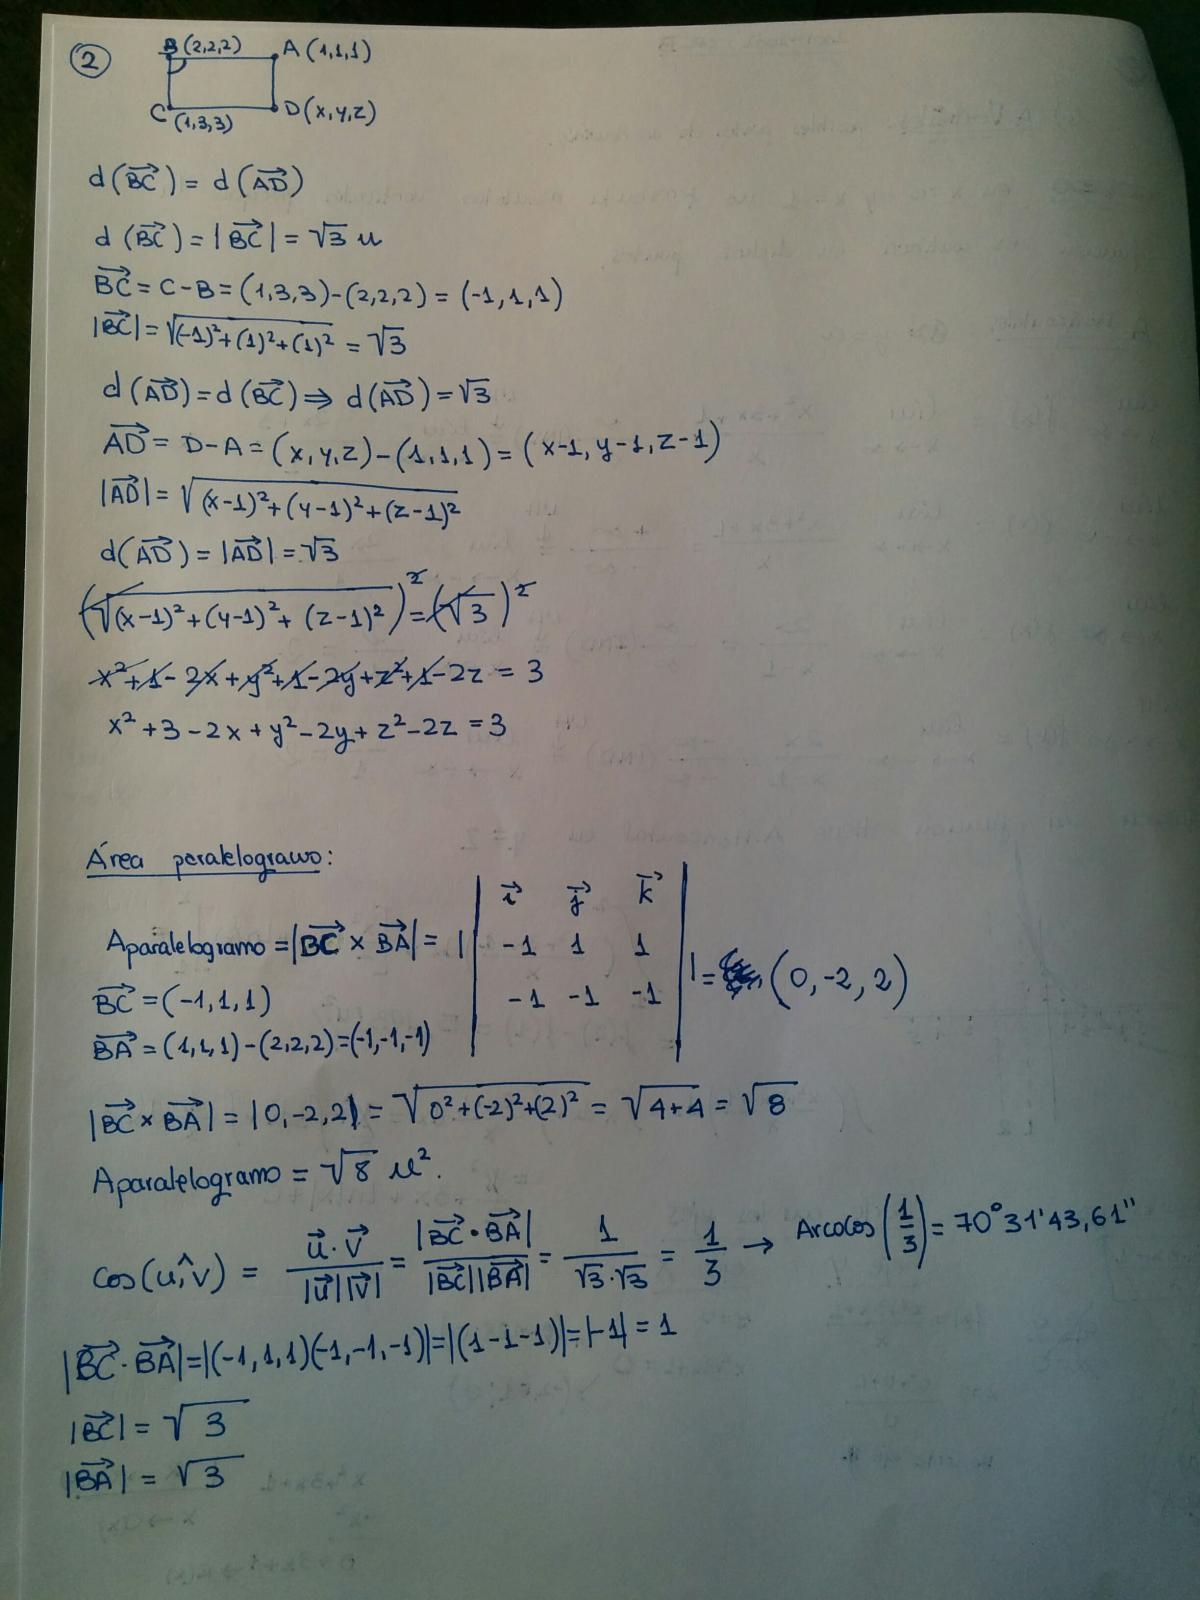 2
B (2,2,2) A (1,1,1)
C (1,3,3) D (x,y,z)
d(BC⃗) = d(AD⃗)
d(BC⃗) = |BC⃗| = √3 u
BC⃗ = C-B = (1,3,3)-(2,2,2) = (-1,1,1)
|BC⃗| = √((-1)²+(1)²+(1)²) = √3
d(AD⃗) = d(BC⃗) ⇒ d(AD⃗) = √3
AD⃗ = D-A = (x,y,z)-(1,1,1) = (x-1, y-1, z-1)
|AD⃗| = √((x-1)²+(y-1)²+(z-1)²)
d(AD⃗) = |AD⃗| = √3
(√((x-1)²+(y-1)²+(z-1)²))² = (√3)²
x²+1-2x+y²+1-2y+z²+1-2z = 3
x²+3-2x+y²-2y+z²-2z = 3
Área paralelogramo:
Aparalelogramo = |BC⃗ x BA⃗| = | | i⃗ j⃗ k⃗
-1 1 1
-1 -1 -1 | | = (0,-2,2)
BC⃗ = (-1,1,1)
BA⃗ = (1,1,1)-(2,2,2)=(-1,-1,-1)
|BC⃗ x BA⃗| = |0,-2,2| = √(0²+(-2)²+(2)²) = √(4+4) = √8
Aparalelogramo = √8 u².
cos(u^,v) = u⃗·v⃗ / |u⃗||v⃗| = |BC⃗·BA⃗| / |BC⃗||BA⃗| = 1 / √3·√3 = 1/3 → Arcocos(1/3) = 70°31'43,61"
|BC⃗·BA⃗|=|(-1,1,1)(-1,-1,-1)|=|(1-1-1)|=|-1|=1
|BC⃗| = √3
|BA⃗| = √3